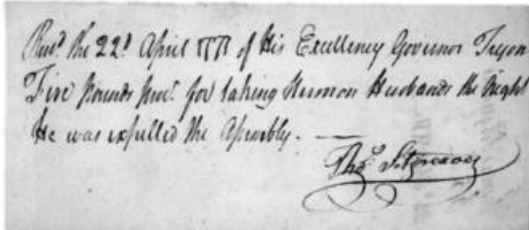 Rec.d the 22.d April 1771 of His Excellency Governor Tryon
Five Pounds Proc.t for taking Hermon Husbands the Night
He was expelled the Assembly. —
Tho.s